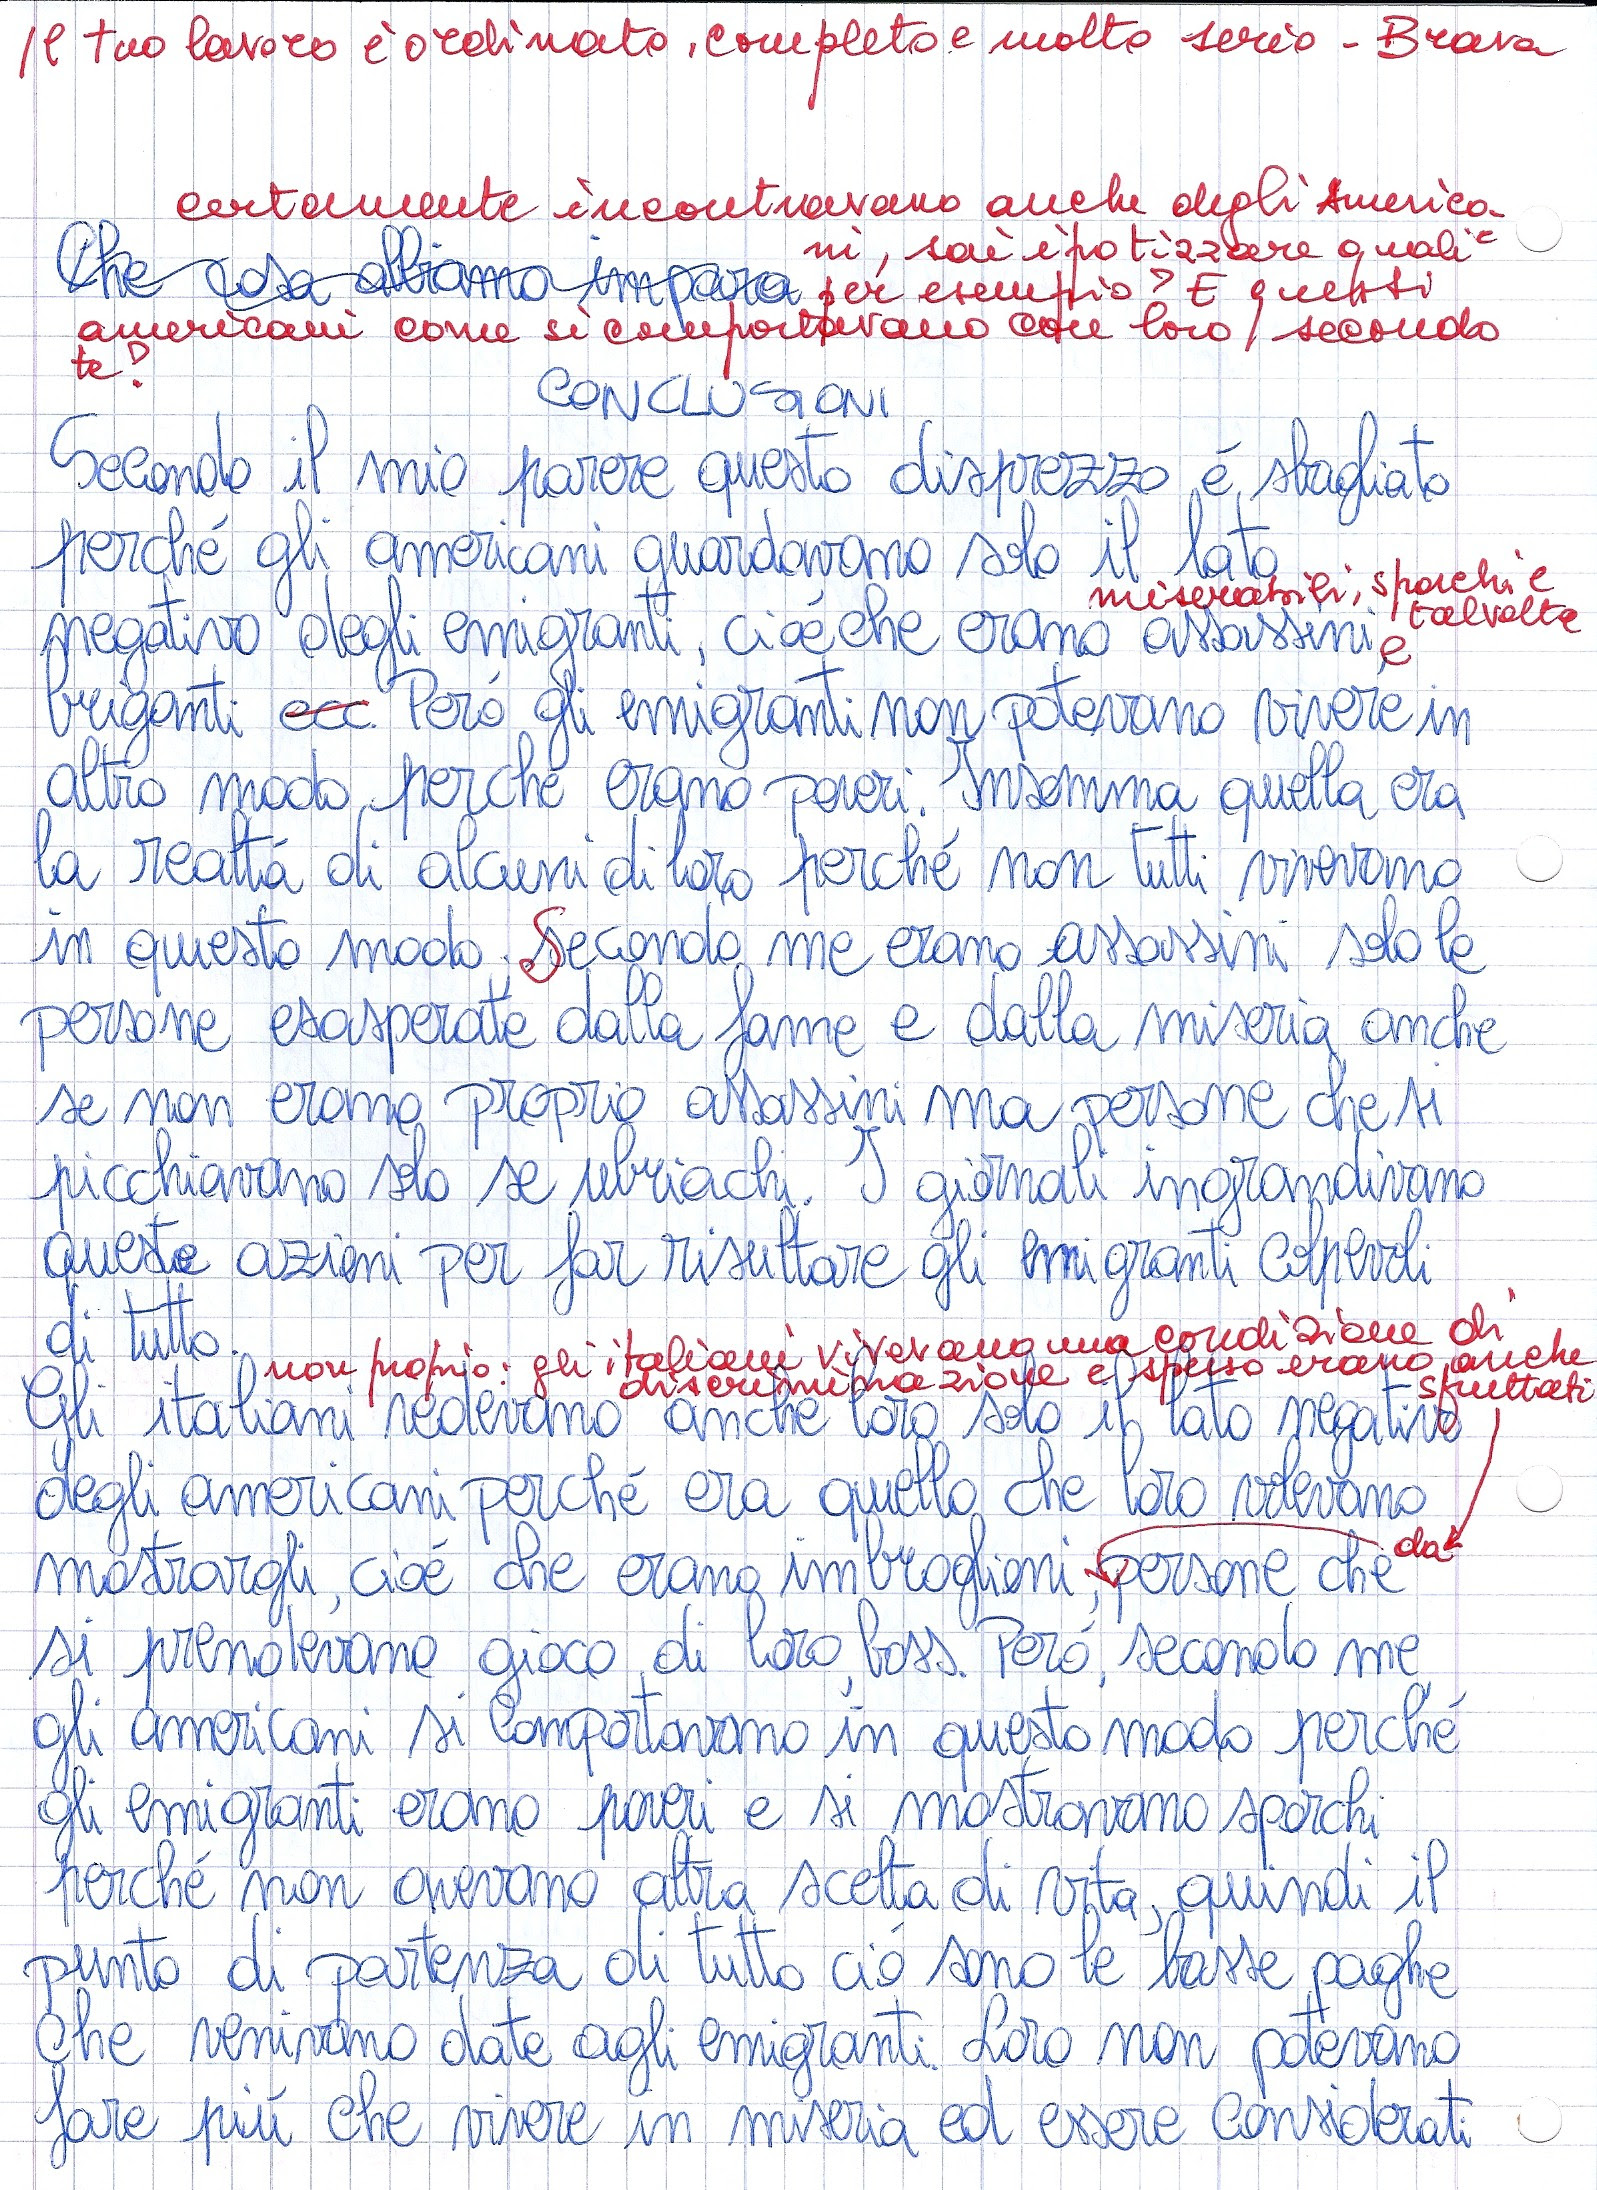 Il tuo lavoro è ordinato, completo e molto serio - Brava
certamente incontravano anche degli America-
ni, sai ipotizzare quali
Che cosa abbiamo impara
per esempio? E questi
americani come si comportavano con loro, secondo
te?
CONCLUSIONI
Secondo il mio parere questo disprezzo é sbagliato
perché gli americani guardavano solo il lato
miserabili, sporchi e
talvolta
negativo degli emigranti, cioé che erano assassini, e
briganti ecc. Peró gli emigranti non potevano vivere in
altro modo perché erano poveri. Insomma quella era
la realtá di alcuni di loro perché non tutti vivevano
in questo modo. Secondo me erano assassini solo le
persone esasperate dalla fame e dalla miseria anche
se non erano proprio assassini ma persone che si
picchiavano solo se ubriachi. I giornali ingrandivano
queste azioni per far risultare gli emigranti colpevoli
di tutto.
non proprio: gli italiani vivevano una condizione di
discriminazione e spesso erano anche
sfruttati
Gli italiani vedevano anche loro solo il lato negativo
degli americani perché era quello che loro volevano
mostrargli, cioé che erano imbroglioni, persone che da
si prendevano gioco di loro, boss. Peró, secondo me
gli americani si comportavano in questo modo perché
gli emigranti erano poveri e si mostravano sporchi
perché non avevano altra scelta di vita, quindi il
punto di partenza di tutto ció sono le basse paghe
che venivano date agli emigranti. Loro non potevano
fare piú che vivere in miseria ed essere considerati